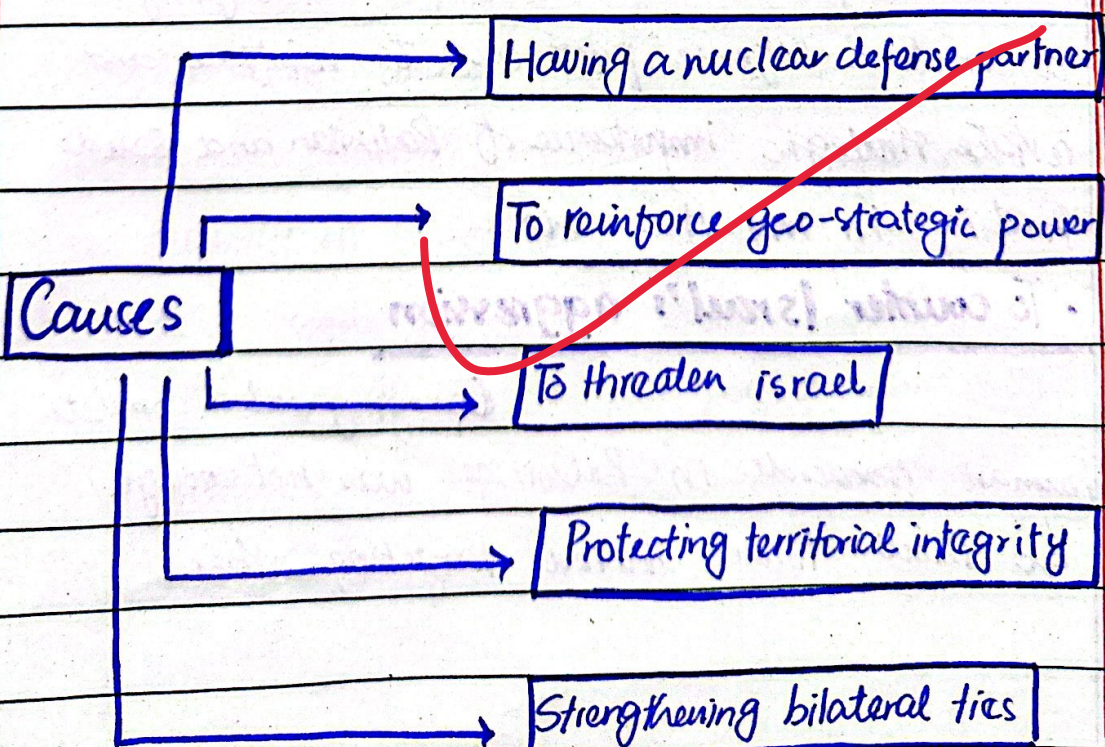 Having a nuclear defense partner
To reinforce geo-strategic power
Causes
To threaten israel
Protecting territorial integrity
Strengthening bilateral ties